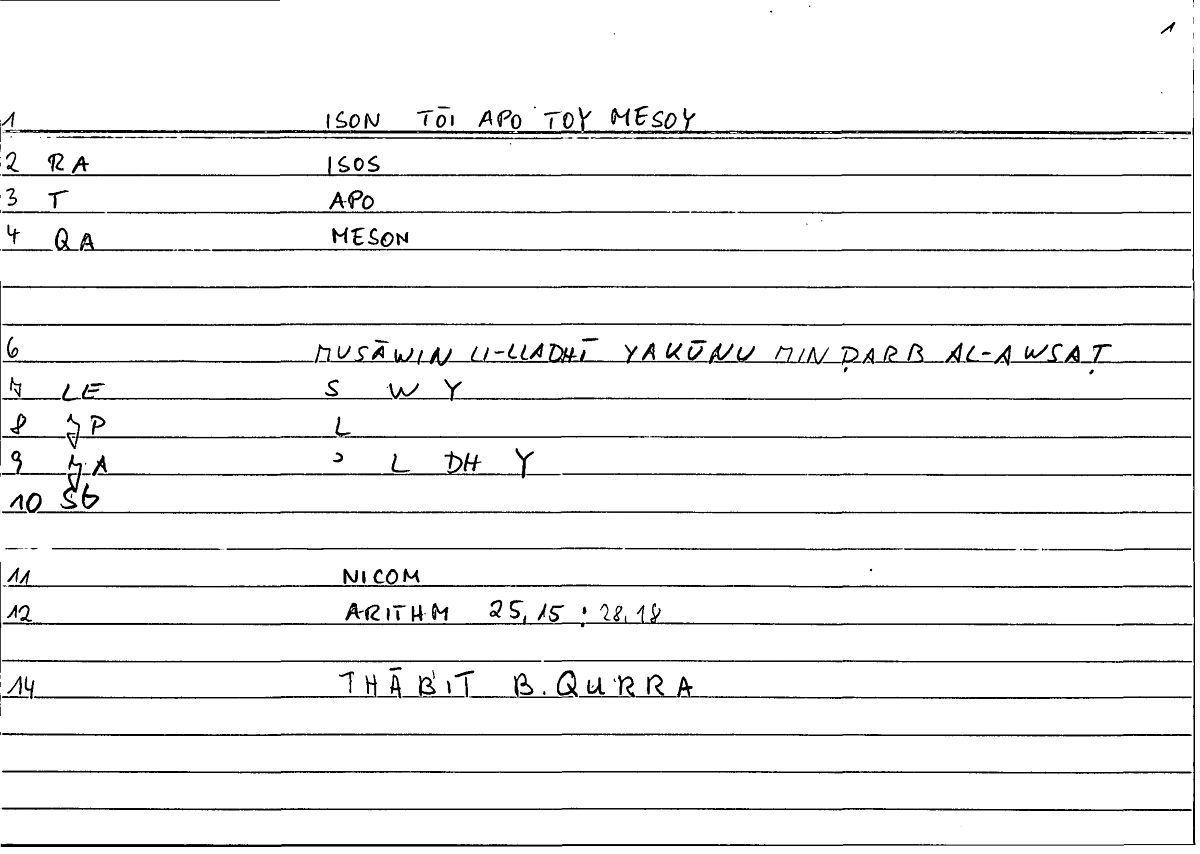 1
1 ISON TŌI APO TOY MESOY
2 RA ISOS
3 T APO
4 QA MESON
6 MUSĀWIN LI-LLADHĪ YAKŪNU MIN ḌARB AL-AWSAṬ
7 LE S W Y
8 P L
9 A ʾ L DH Y
10
11 NICOM
12 ARITHM 25,15 : 28,18
14 THĀBIT B. QURRA